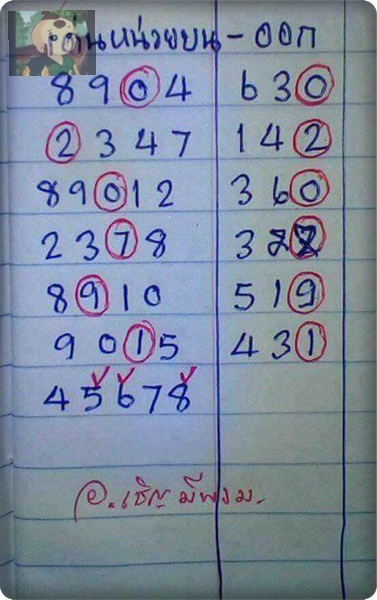 เด่นหน่วยบน - ออก
8 9 0 4 630
2 3 4 7 142
8 9 0 1 2 360
2 3 7 8
8 9 1 0 519
9 0 1 5 431
4 5 6 7 8
อ.เชิญ มีพรม.